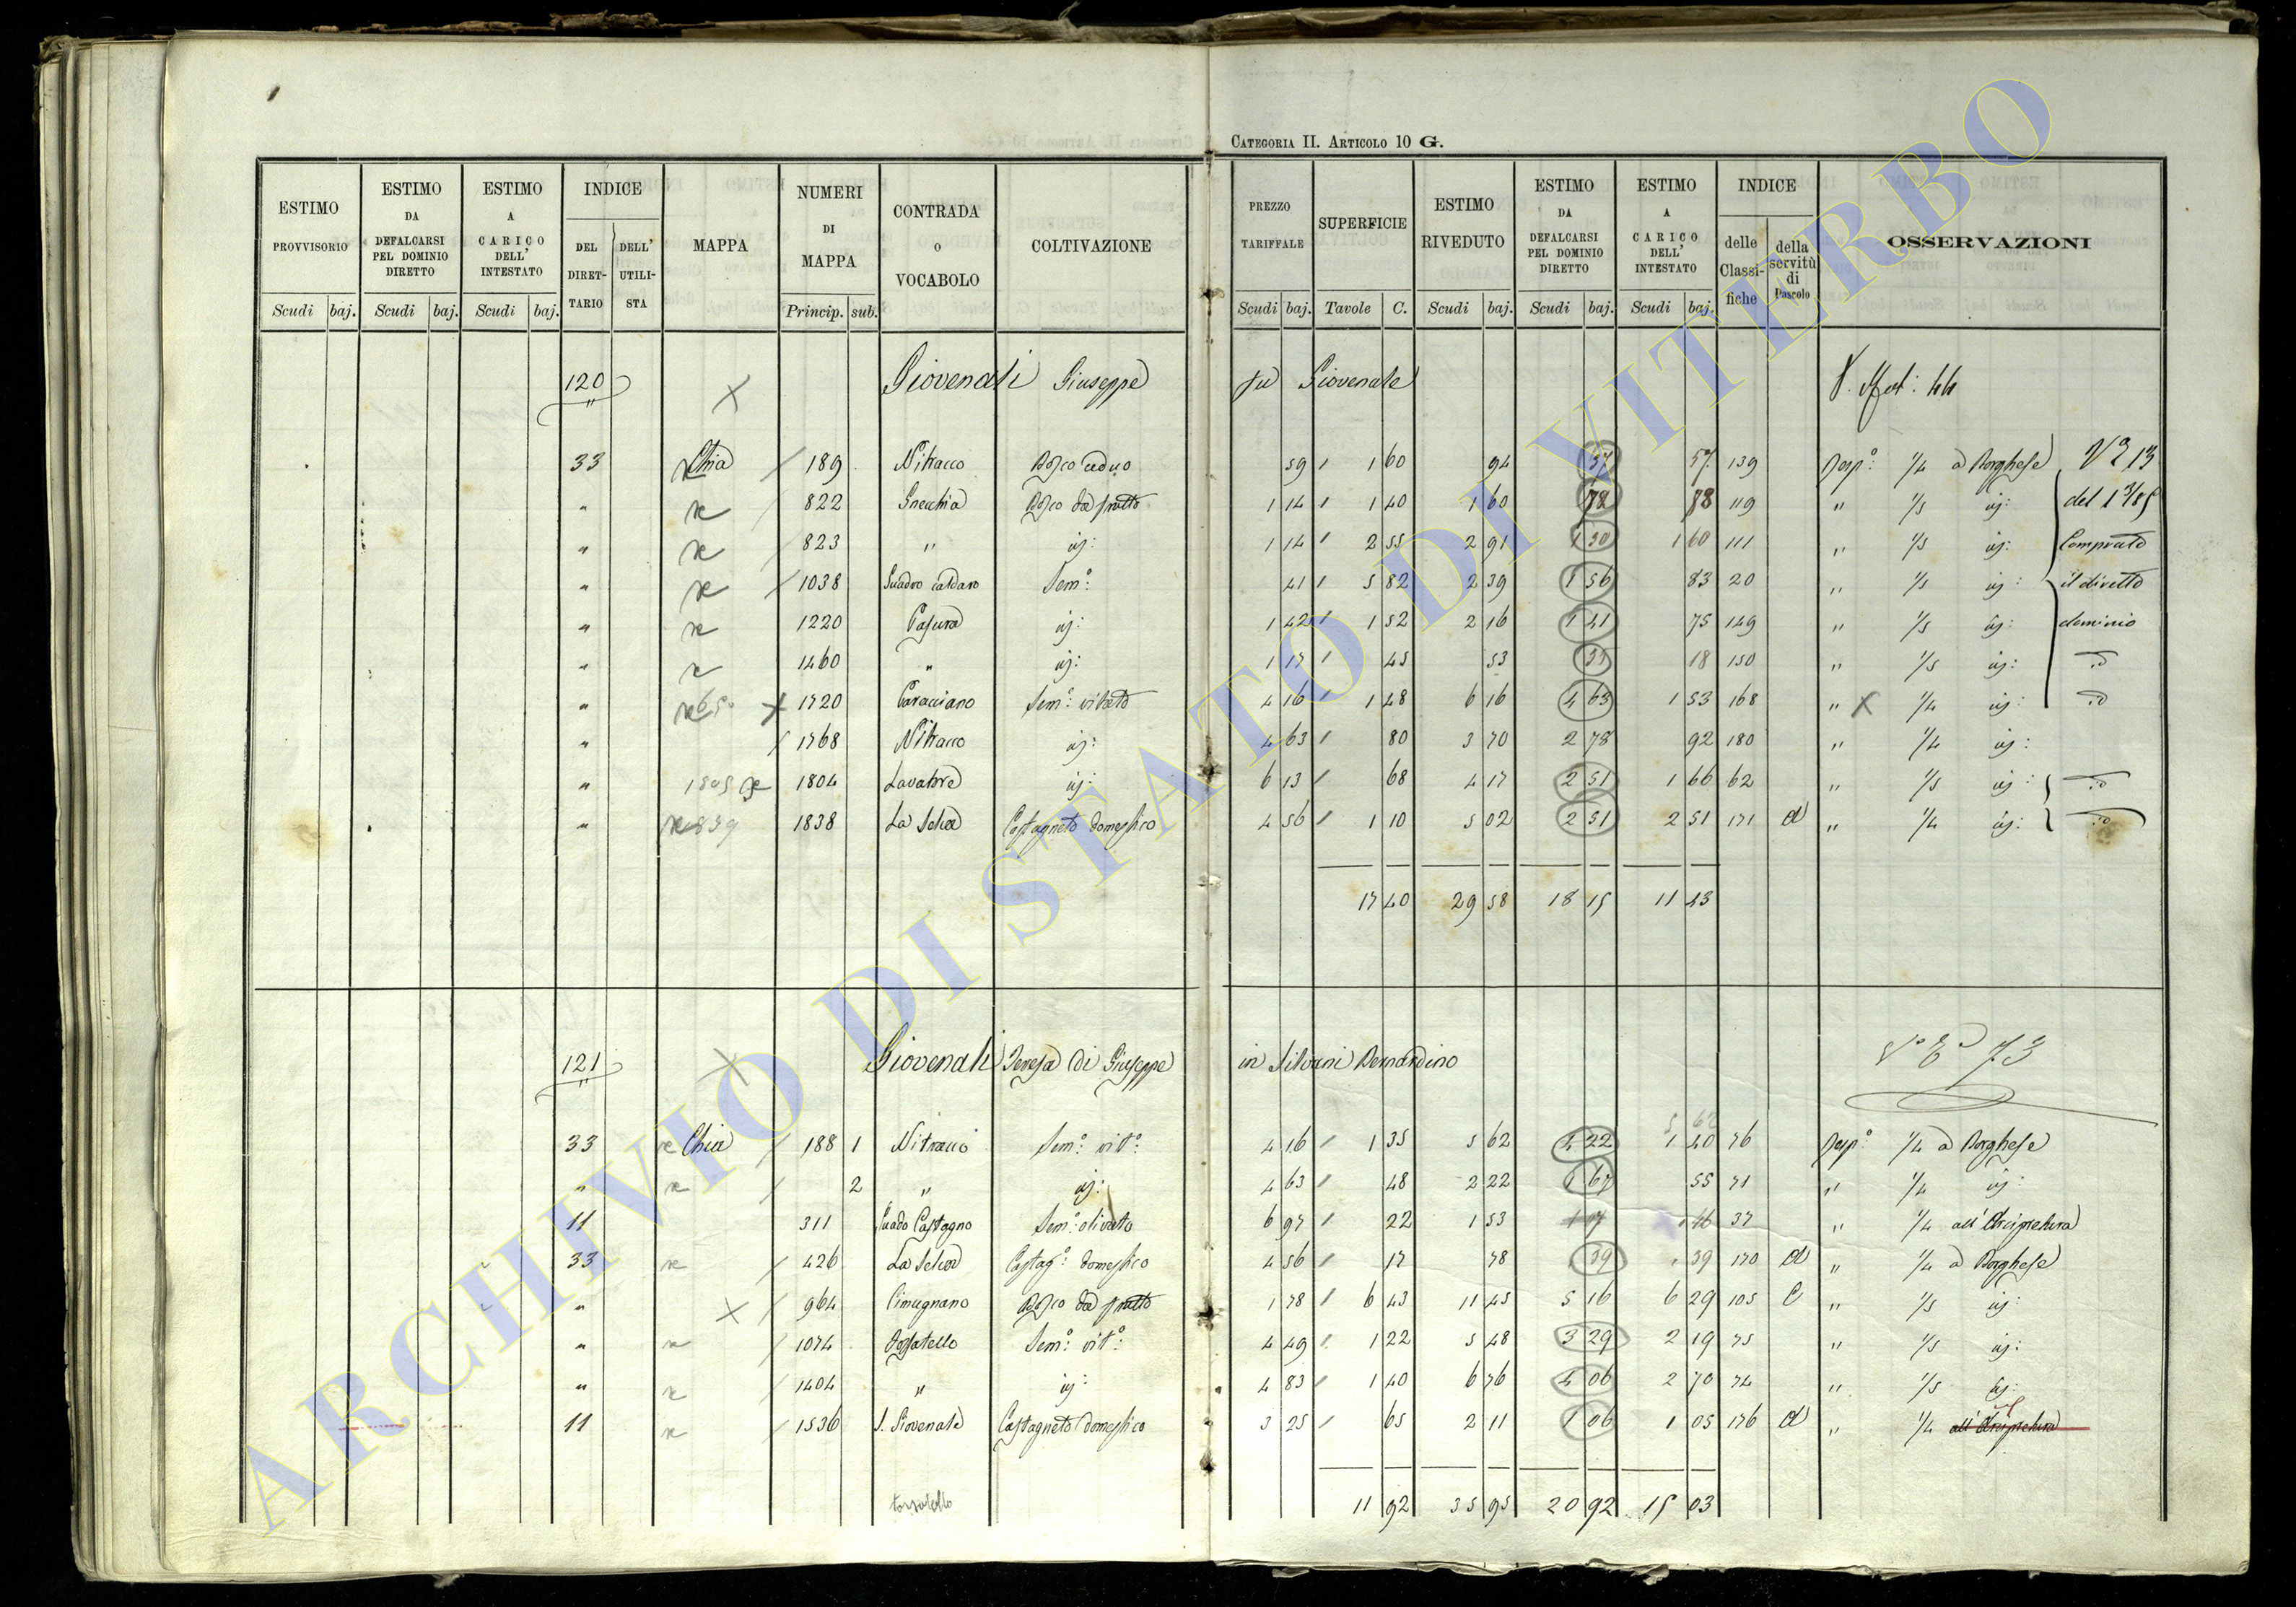 CATEGORIA II. ARTICOLO 10 G.
ESTIMO PROVVISORIO Scudi baj. ESTIMO DA DEFALCARSI PEL DOMINIO DIRETTO Scudi baj. ESTIMO A CARICO DELL' INTESTATO Scudi baj. INDICE DEL DIRETTARIO DELL' UTILISTA MAPPA NUMERI DI MAPPA Princip. sub. CONTRADA O VOCABOLO COLTIVAZIONE PREZZO TARIFFALE Scudi baj. SUPERFICIE Tavole C. ESTIMO RIVEDUTO Scudi baj. ESTIMO DA DEFALCARSI PEL DOMINIO DIRETTO Scudi baj. ESTIMO A CARICO DELL' INTESTATO Scudi baj. INDICE delle Classifiche della servitù di Pascolo OSSERVAZIONI
120 Giovenali Giuseppe fu Giovenale 44
33 Chia 189 Nitracco Bosco ceduo 59 1 60 94 37 57 139 Resp: 1/4 a Borghese
" 822 Gnecchia Bosco da frutto 1 14 1 40 1 60 78 119 " 1/5 ij: del
" 823 " ij: 1 14 2 55 2 91 1 60 111 " 1/5 ij: Comprato
" 1038 Guadro caldaro Sem: 41 5 82 2 39 1 56 83 20 " 1/5 ij: il diretto
" 1220 Casura ij: 1 42 1 52 2 16 1 41 75 149 " 1/5 ij: dominio
" 1460 " ij: 1 17 45 53 35 18 150 " 1/5 ij:
" 1720 Caracciano Sem: vitato 4 16 1 48 6 16 4 63 1 53 168 " 1/4 ij:
" 1768 Nitracco ij: 4 63 80 3 70 2 78 92 180 " 1/4 ij:
" 1805 1804 Lavatore ij: 6 13 68 4 17 2 51 1 66 62 " 1/5 ij:
" 1839 1838 La Selva Castagneto domestico 4 56 1 10 5 02 2 51 2 51 171 d " 1/4 ij:
17 40 29 58 18 15 11 43
121 Giovenali Teresa di Giuseppe in Silvani Bernardino 73
33 Chia 188 1 Nitracco Sem: vit: 4 16 1 35 5 62 4 22 1 40 76 Resp: 1/4 a Borghese
" 2 " ij: 4 63 48 2 22 1 67 55 71 " 1/4 ij:
11 311 Guado Castagno Sem: olivato 6 97 22 1 53 37 " 1/4 all'Arcipretura
33 426 La Selva Castag: domestico 4 56 17 78 39 39 170 d " 1/4 a Borghese
" 964 Cimugnano Bosco da frutto 1 78 6 43 11 45 5 16 6 29 105 C " 1/5 ij:
" 1074 Fossatello Sem: vit: 4 49 1 22 5 48 3 29 2 19 75 " 1/5 ij:
" 1404 " ij 4 83 1 40 6 76 4 06 2 70 74 " 1/5 ij:
11 1536 S. Giovenale Castagneto domestico 3 25 65 2 11 1 06 1 05 176 d " 1/4 all'Arcipretura
11 92 35 95 20 92 15 03
ARCHIVIO DI STATO DI VITERBO